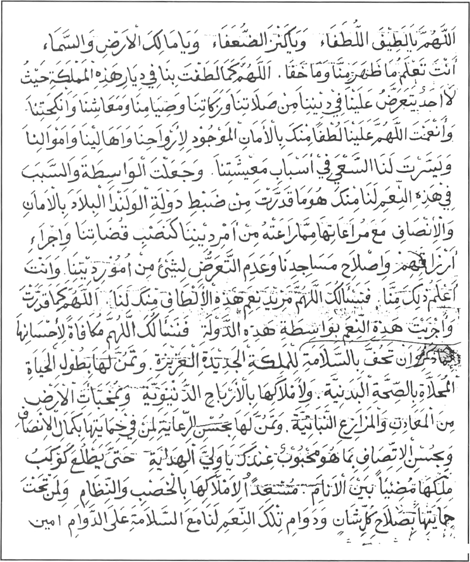 اللهم يا لطيف اللطفاء ويا كنز الضعفاء ويا مالك الارض والسماء
انت تعلم ما ظهر منا وما خفا. اللهم كما لطفت بنا في ديار هذه المملكة حيث
لا احد يتعرض علينا في ديننا من صلاتنا وزكاتنا وصيامنا ومعاشنا وانكحتنا
وانعمت اللهم علينا لطفا منك بالامان الموجود لارواحنا واهالينا واموالنا
ويسرت لنا السعي في اسباب معيشتنا. وجعلت الواسطة والسبب
في هذه النعم لنا منك هو ما قدرت من ضبط دولة الولندا البلاد بالامان
والانصاف مع مراعاتها ممراعته من امر ديننا كنصب قضاتنا واجراء
ارزاقهم واصلاح مساجدنا وعدم التعرض لشئ من امور ديننا. وانت
اعلم بذلك منا. فنسألك اللهم مزيد نعم هذه الالطاف منك لنا. اللهم كما قدرت
واجريت هذه النعم بواسطة هذه الدولة فنسألك اللهم مكافاة لاحسانها
ان تحف بالسلامة للملكة الجديدة العزيزة. وتمن لها بطول الحياة
المحلاة بالصحة البدنية. ولاملاكها بالارباح الدنيوية وكمخبات الارض
من المعادن والمزارع النباتية. وتمن لها بحسن الرعاية لمن في حمايتها بكمال الانصاف
وبحسن الاتصاف بما هو محبوب عندك يا ولي الهداية حتى يطلع كوكب
ملكها مضيئا بين الانام. مستعدا لاملاكها بالخصب والنظام ولمن تحت
حمايتها بصلاح كل شان ودوام تلك النعم لنا مع السلامة على الدوام امين